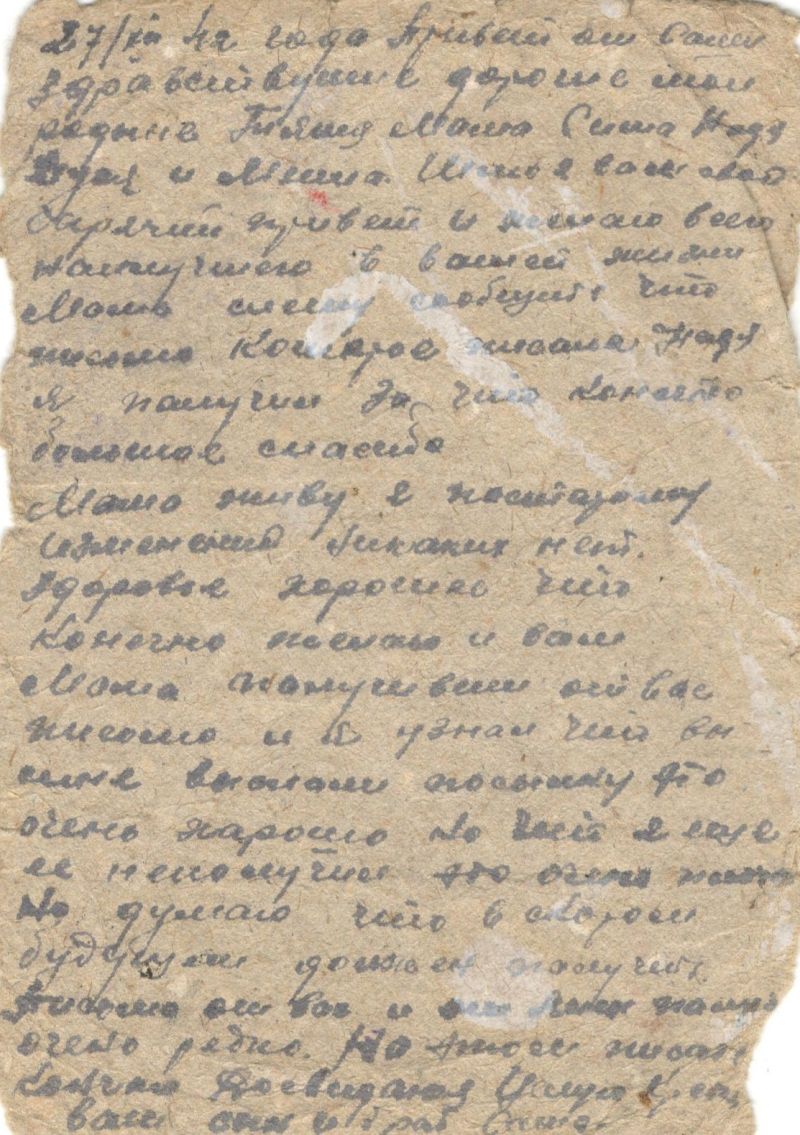 27/XII 42 года Привет от Саши
Здравствуйте дорогие мои
родные Тятя Мама Сима Надя
и Миша. Шлю я вам свой
горячий привет и желаю всего
наилучшего в вашей жизни
Мама спешу сообщить что
письмо которое писала Надя
я получил за что конечно
большое спасибо
Мама живу я постарому
изменений никаких нет.
Здоровье хорошее что
конечно желаю и вам
Мама получивши от вас
письмо и я узнал что вы
мне выслали посылку это
очень харошо но что я еще
ее неполучил это очень
Но думаю что в скором
будущем должен получить
Письмо от вас и от
очень редко. На этом писать
кончаю Досвидания Целую
ваш сын и брат Саша